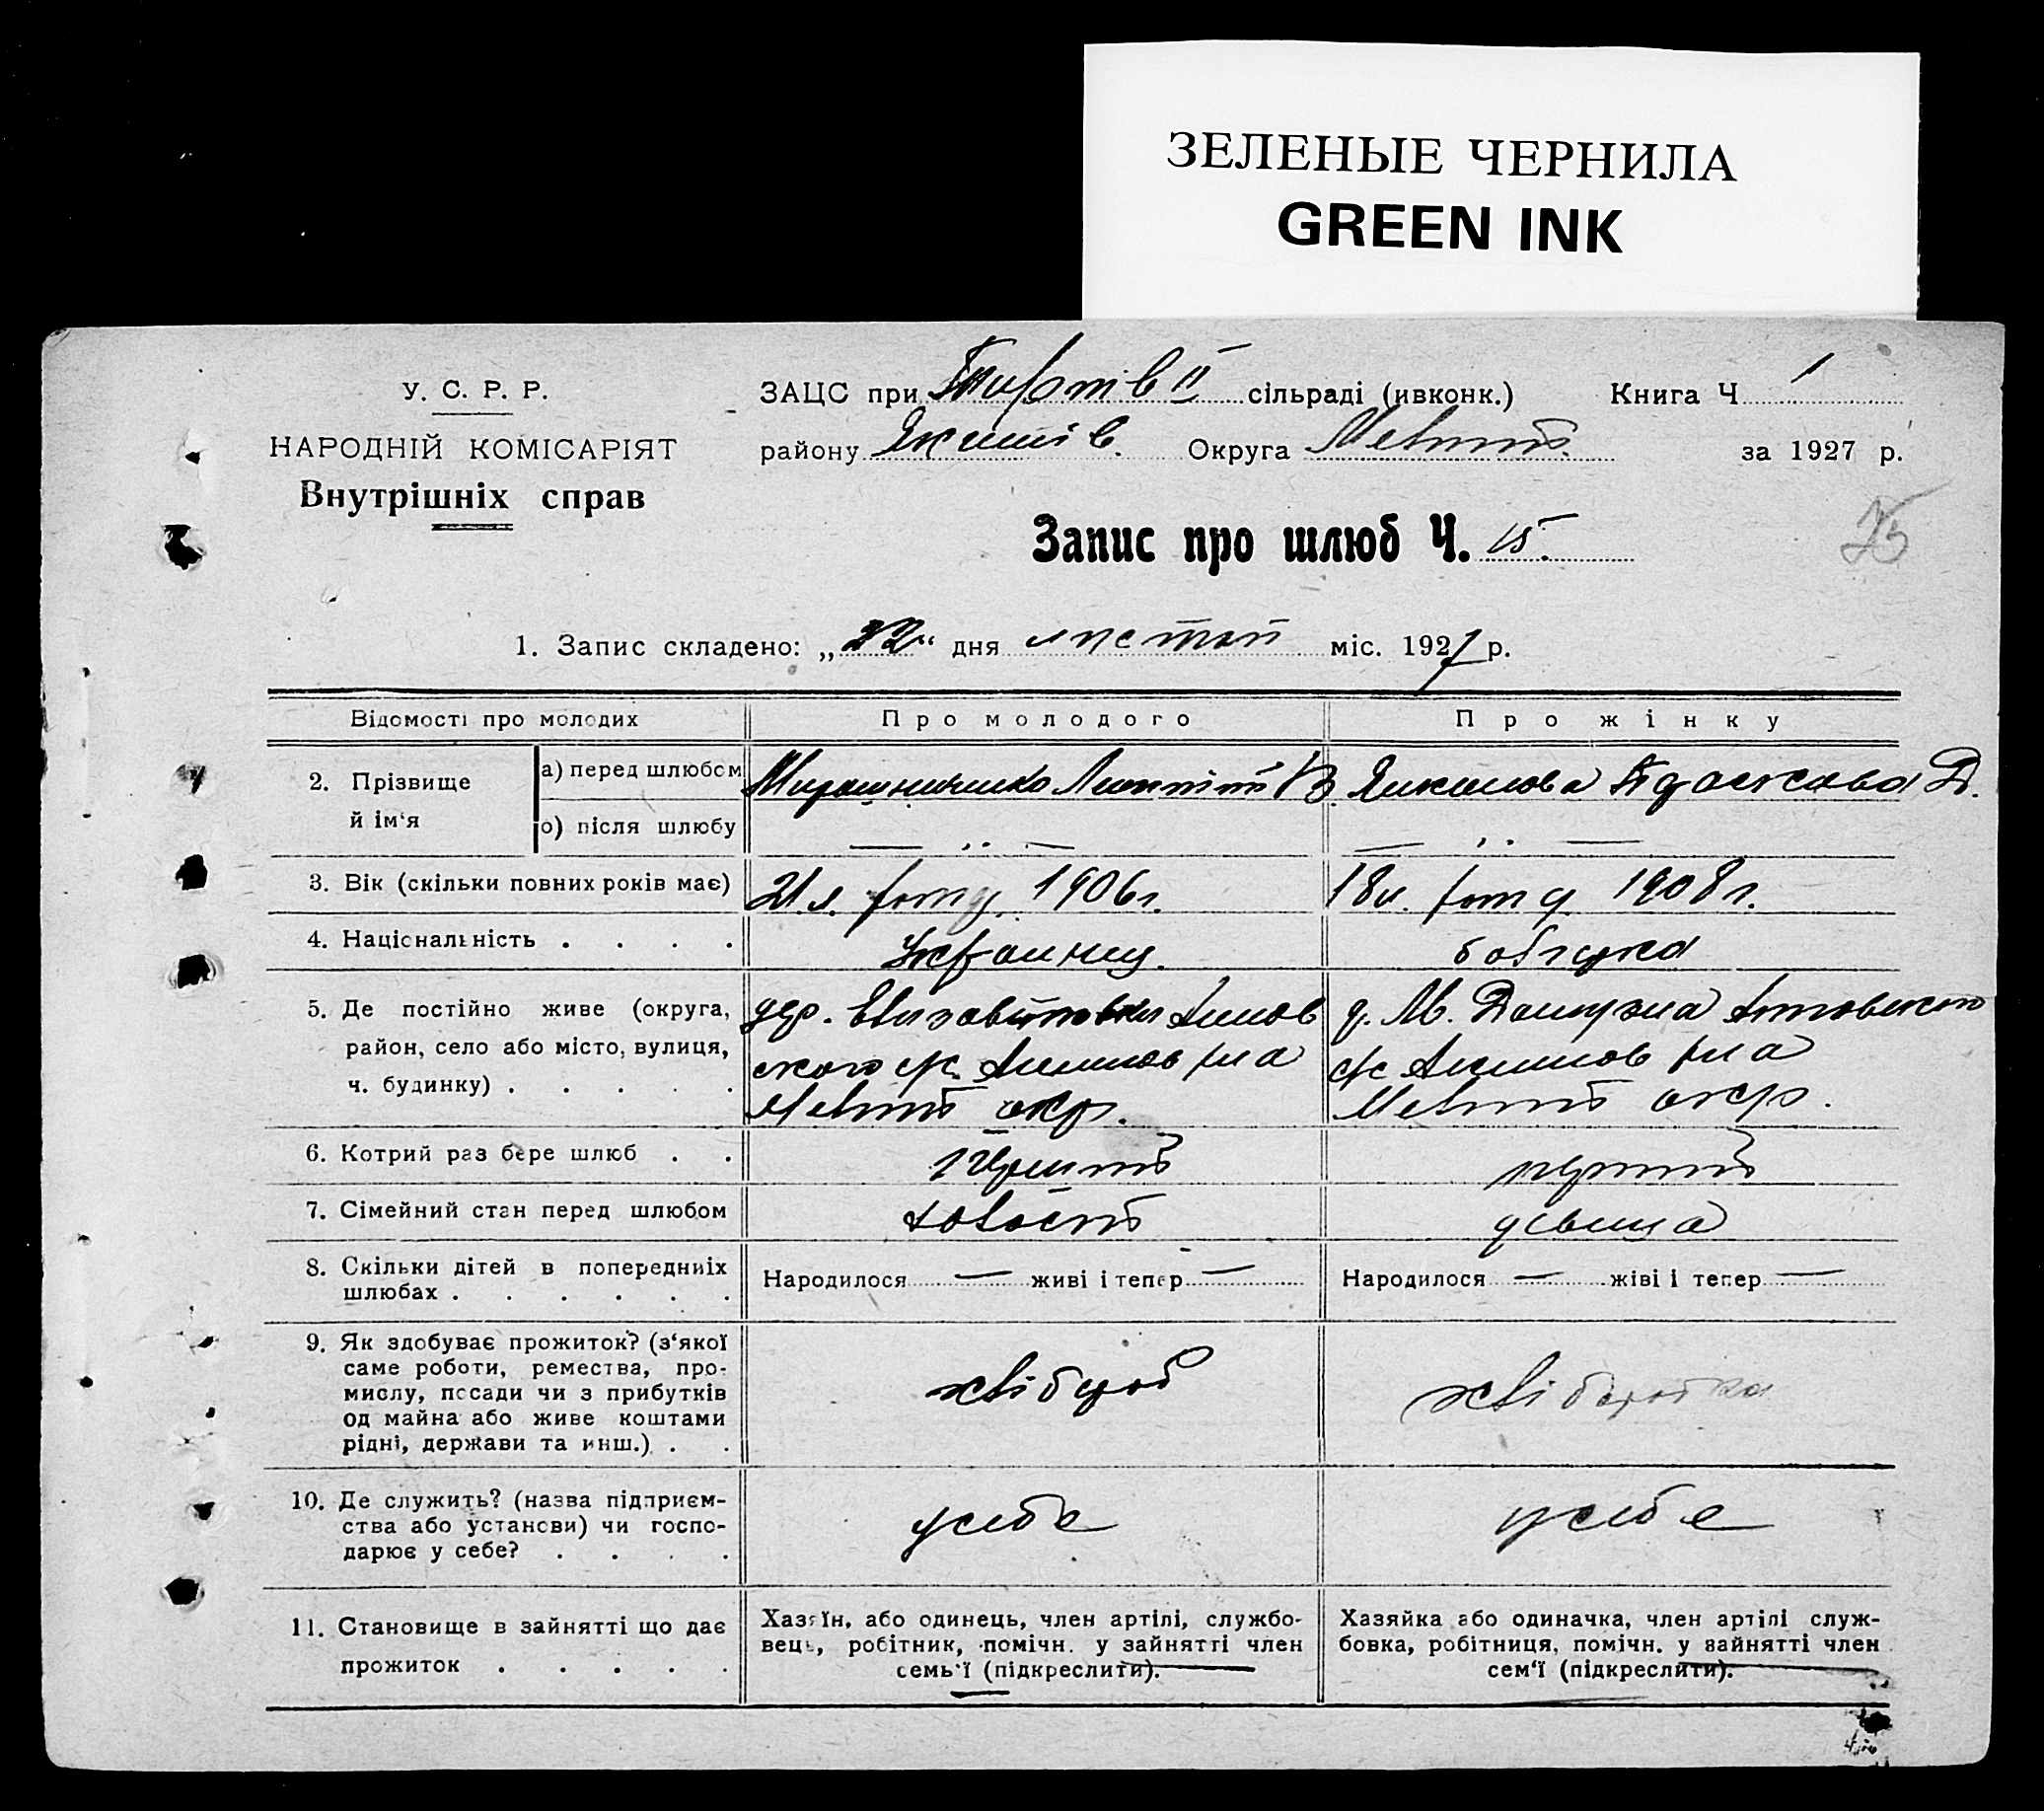 ЗЕЛЕНЫЕ ЧЕРНИЛА
GREEN INK
У. С. Р. Р.
НАРОДНІЙ КОМІСАРІЯТ
Внутрішніх справ
ЗАЦС при II сільраді (ивконк.) Книга Ч 1
району Якимів. Округа Меліт. за 1927 р.
Запис про шлюб Ч. 15.
1. Запис складено: „22“ дня листоп міс. 1927 р.
Відомості про молодих Про молодого Про жінку
2. Прізвище й ім‘я
а) перед шлюбом В. Д.
о) після шлюбу — „ — — „ —
3. Вік (скільки повних років має) 21 л. 1906 г. 18 л. 1908 г.
4. Національність . . . . Украинец. болгарка
5. Де постійно живе (округа, дер. д. М.
район, село або місто, вулиця, с/с Акимов р-на
ч. будинку) . . . . . Меліт окр. Меліт окр.
6. Котрий раз бере шлюб . . первий первий
7. Сімейний стан перед шлюбом холост девица
8. Скільки дітей в попередниіх шлюбах . . . . . .
Народилося — живі і тепер — Народилося — жіві і тепер —
9. Як здобуває прожиток? (з‘якої
саме роботи, ремества, про-
мислу, посади чи з прибутків хлібороб хліборобка
од майна або живе коштами
рідні, держави та инш.) . .
10. Де служить? (назва підприєм-
ства або установи) чи госпо- у себе у себе
дарює у себе? . . . .
11. Становище в зайнятті що дає
прожиток . . . . .
Хазяїн, або одинець, член артілі, службо-
вець, робітник, помічн. у зайнятті член
семь‘ї (підкреслити).
Хазяйка або одиначка, член артілі служ-
бовка, робітниця, помічн. у зайнятті член
сем‘ї (підкреслити).